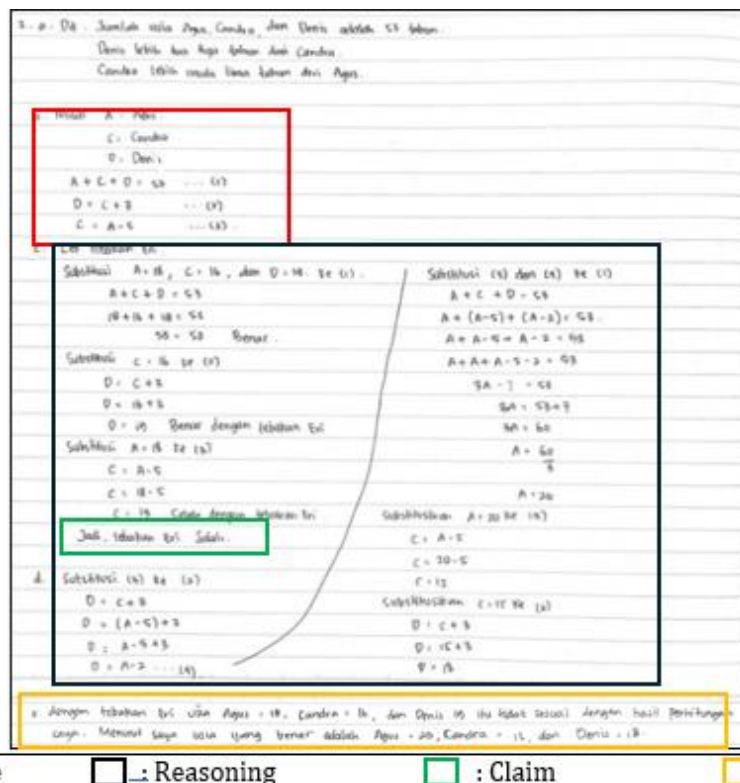 2. a. Dik. Jumlah usia Agus, Candra, dan Denis adalah 53 tahun.
Denis lebih tua tiga tahun dari Candra.
Candra lebih muda lima tahun dari Agus.
b. Misal A = Agus
C = Candra
D = Denis
A + C + D = 53 ... (1)
D = C + 3 ... (2)
C = A - 5 ... (3)
c. Cek tebakan Eri.
Substitusi A = 18, C = 16, dan D = 19 ke (1).
A + C + D = 53
18 + 16 + 19 = 53
53 = 53 Benar.
Substitusi C = 16 ke (2)
D = C + 3
D = 16 + 3
D = 19 Benar dengan tebakan Eri
Substitusi A = 18 ke (3)
C = A - 5
C = 18 - 5
C = 13 dengan tebakan Eri
Jadi, tebakan Eri Salah.
d. Substitusi (3) ke (2)
D = C + 3
D = (A - 5) + 3
D = A - 5 + 3
D = A - 2 ... (4)
Substitusi (3) dan (4) ke (1)
A + C + D = 53
A + (A - 5) + (A - 2) = 53.
A + A - 5 + A - 2 = 53
A + A + A - 5 - 2 = 53
3A - 7 = 53
3A = 53 + 7
3A = 60
A = 60
3
A = 20
Substitusikan A = 20 ke (3)
C = A - 5
C = 20 - 5
C = 15
Substitusikan C = 15 ke (2)
D = C + 3
D = 15 + 3
D = 18
e. dengan tebakan Eri usia Agus = 18, Candra = 16, dan Denis 19 itu tidak sesuai dengan hasil perhitungan
saya. Menurut saya usia yang benar adalah Agus = 20, Candra = 15, dan Denis = 18.
: Reasoning
: Claim